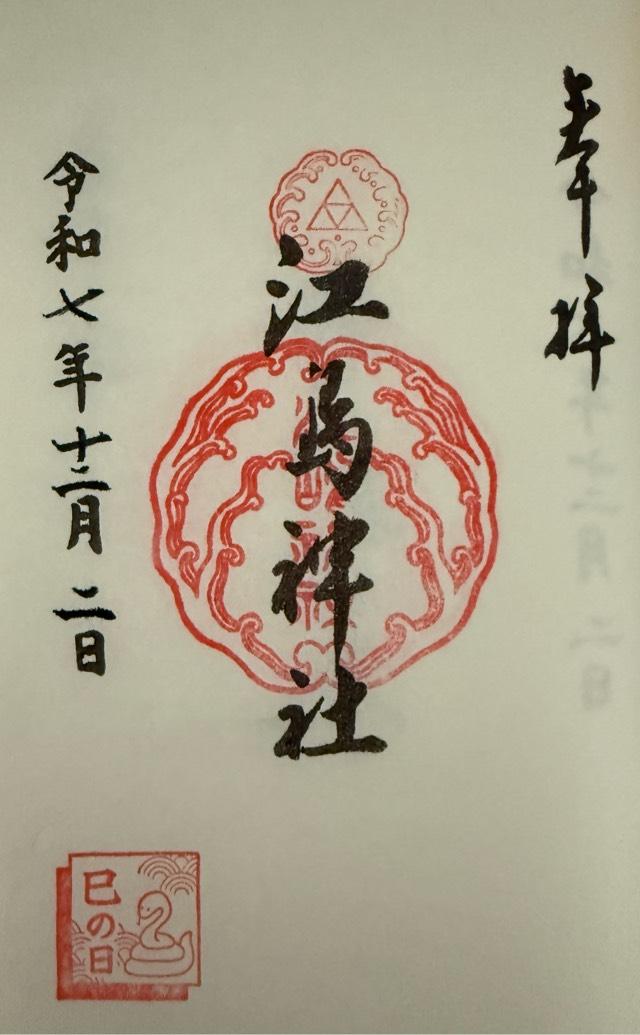 奉拝
江島神社
令和七年十二月二日
巳の日